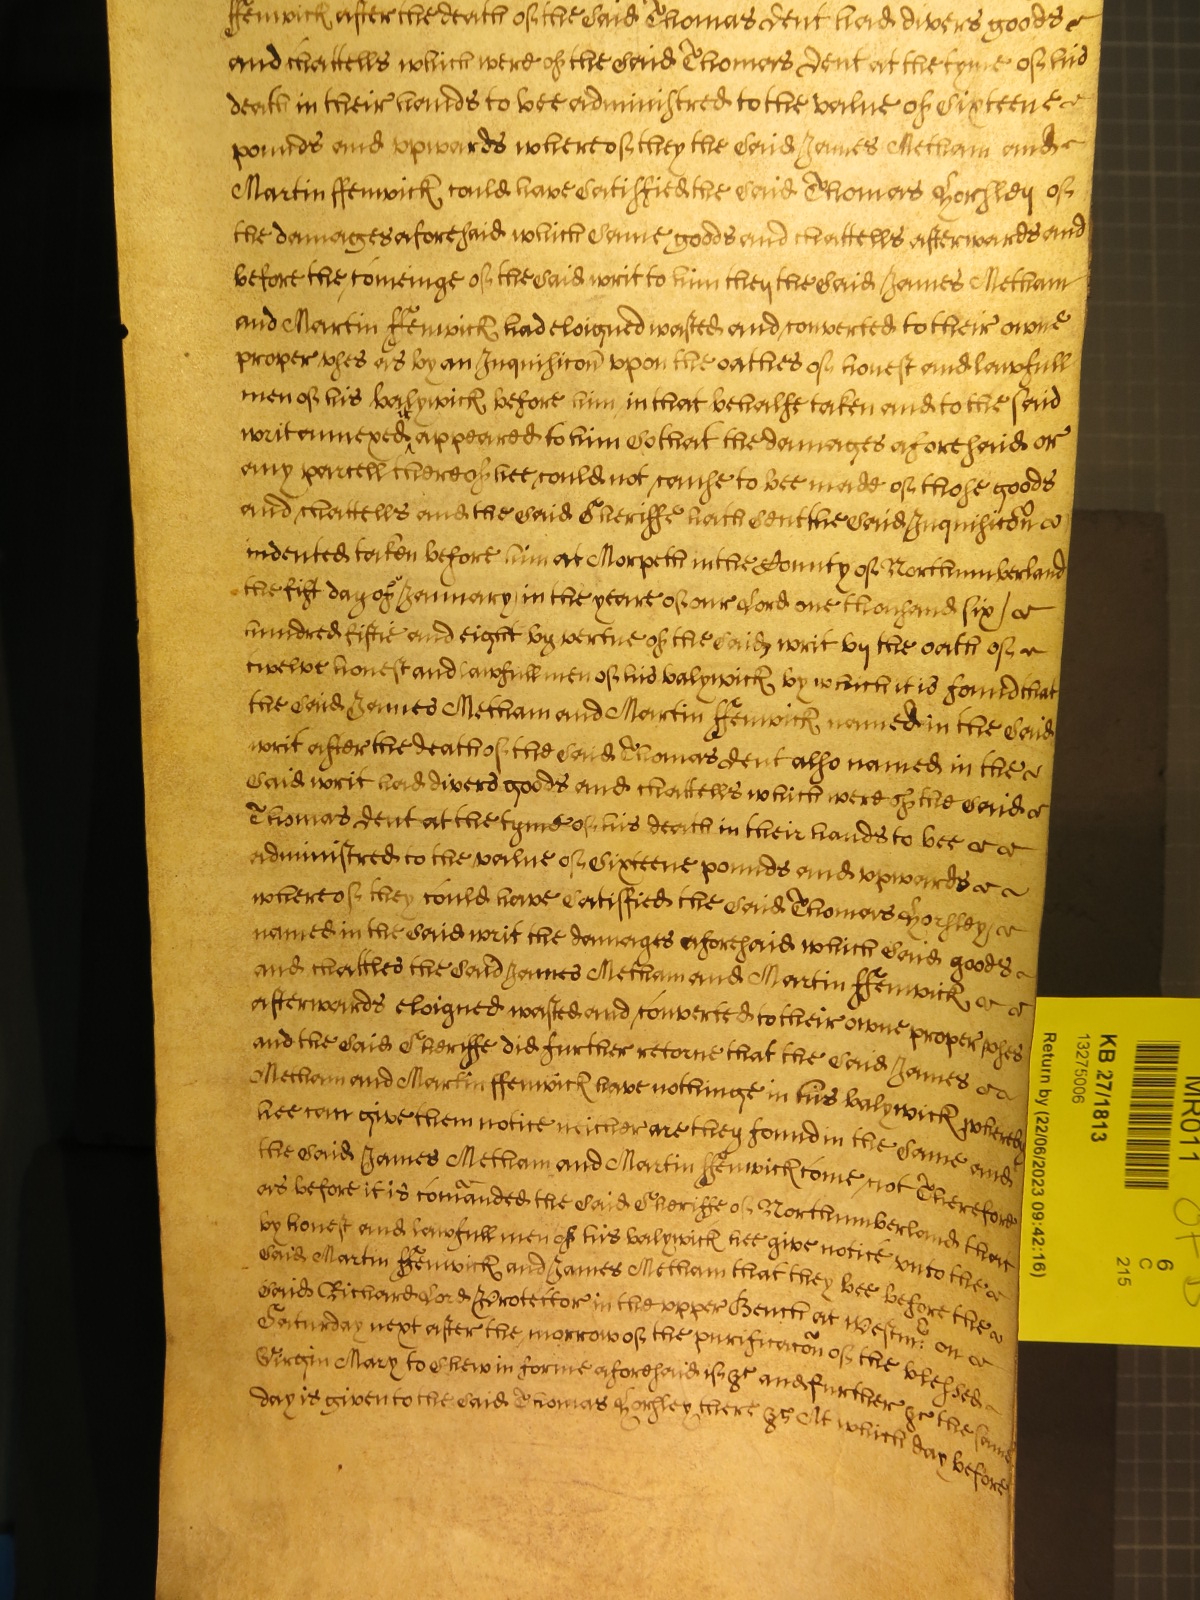 ffenwick after the death of the said Thomas Dent had divers goods
and chattells which were of the said Thomas Dent at the tyme of his
death in their hands to bee administred to the value of Sixteene
pounds and upwards whereof they the said James Metham and
Martin ffenwick could have satisfied the said Thomas Lorsley of
the damages aforesaid which same goods and chattells afterwards and
before the comeinge of the said writ to him they the said James Metham
and Martin ffenwick had eloigned wasted and converted to their owne
proper uses as by an Inquisicon upon the oathes of honest and lawfull
men of his balywick before him in that behalfe taken and to the said
writ annexed it appeared to him So that the damages aforesaid or
any parcell thereof hee could not cause to bee made of those goods
and chattells and the said Sheriffe hath sent the said Inquisicon
indented taken before him at Morpeth in the County of Northumberland
the fift day of January in the yeare of our Lord one thousand six
hundred fiftie and eight by vertue of the said writ by the oath of
twelve honest and lawfull men of his balywick by which it is found that
the said James Metham and Martin ffenwick named in the said
writ after the death of the said Thomas Dent also named in the
said writ had divers goods and chattells which were of the said
Thomas Dent at the tyme of his death in their hands to bee
administred to the value of Sixteene pounds and upwards
whereof they could have satisfied the said Thomas Lorsley
named in the said writ the damages aforesaid which said goods
and chattles the said James Metham and Martin ffenwick
afterwards eloigned wasted and converted to their owne proper uses
and the said Sheriffe did further retorne that the said James
Metham and Martin ffenwick have nothinge in his balywick whereby
hee can give them notice neither are they found in the same and
the said James Metham and Martin ffenwick come not Therefore
as before it is comanded the said Sheriffe of Northumberland that
by honest and lawfull men of his balywick hee give notice unto the
said Martin ffenwick and James Metham that they bee before the
said Richard Lord Protector in the upper Bench at Westmr on
Saturday next after the morrow of the purificacon of the blessed
Virgin Mary to shew in forme aforesaid if &c and further &c the same
day is given to the said Thomas Lorsley there &c At which day before
MR011
KB 27/1813
13275006
Return by (22/06/2023 09:42:16)
6
C
215